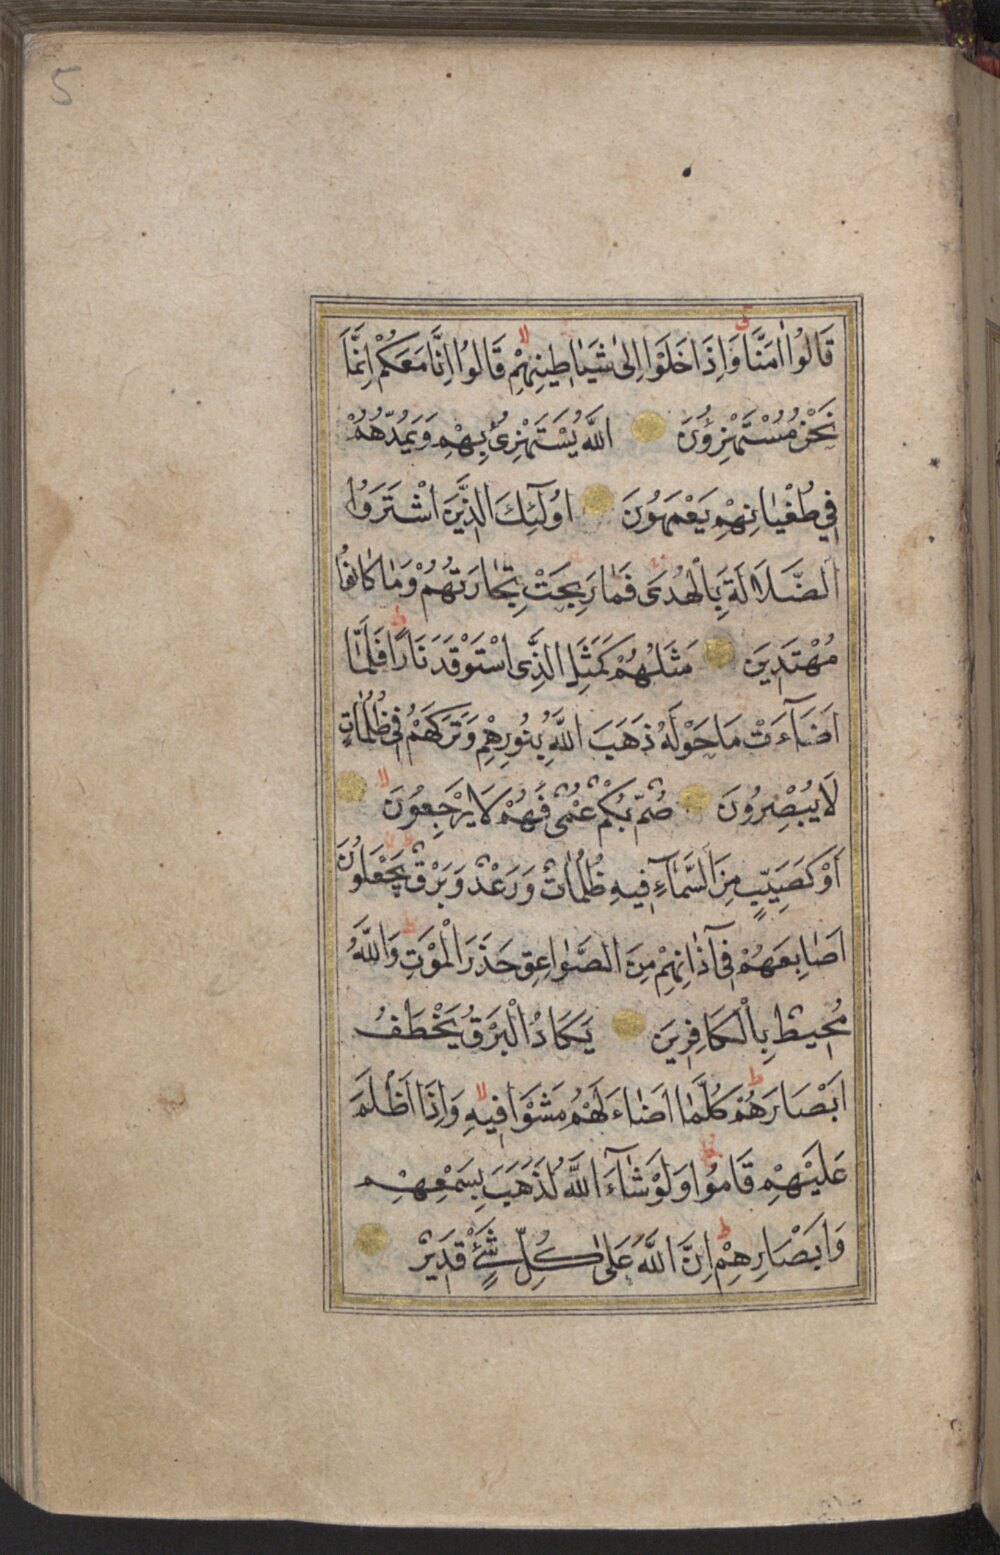 5
قَالُوا اٰمَنَّا وَاِذَا خَلَوْا اِلٰى شَيَاطِينِهِمْ قَالُوا اِنَّا مَعَكُمْ اِنَّمَا
نَحْنُ مُسْتَهْزِؤُنَ اَللّٰهُ يَسْتَهْزِئُ بِهِمْ وَيَمُدُّهُمْ
فِي طُغْيَانِهِمْ يَعْمَهُونَ اُولٰٓئِكَ الَّذِينَ اشْتَرَوُا
الضَّلَالَةَ بِالْهُدَى فَمَا رَبِحَتْ تِجَارَتُهُمْ وَمَا كَانُوا
مُهْتَدِينَ مَثَلُهُمْ كَمَثَلِ الَّذِى اسْتَوْقَدَ نَارًا فَلَمَّا
اَضَآءَتْ مَا حَوْلَهُ ذَهَبَ اللّٰهُ بِنُورِهِمْ وَتَرَكَهُمْ فِى ظُلُمَاتٍ
لَا يُبْصِرُونَ صُمٌّ بُكْمٌ عُمْىٌ فَهُمْ لَا يَرْجِعُونَ
اَوْ كَصَيِّبٍ مِنَ السَّمَآءِ فِيهِ ظُلُمَاتٌ وَرَعْدٌ وَبَرْقٌ يَجْعَلُونَ
اَصَابِعَهُمْ فِىٓ اٰذَانِهِمْ مِنَ الصَّوَاعِقِ حَذَرَ الْمَوْتِ وَاللّٰهُ
مُحِيطٌ بِالْكَافِرِينَ يَكَادُ الْبَرْقُ يَخْطَفُ
اَبْصَارَهُمْ كُلَّمَا اَضَاءَ لَهُمْ مَشَوْا فِيهِ وَاِذَا اَظْلَمَ
عَلَيْهِمْ قَامُوا وَلَوْ شَآءَ اللّٰهُ لَذَهَبَ بِسَمْعِهِمْ
وَاَبْصَارِهِمْ اِنَّ اللّٰهَ عَلٰى كُلِّ شَئٍ قَدِيرٌ